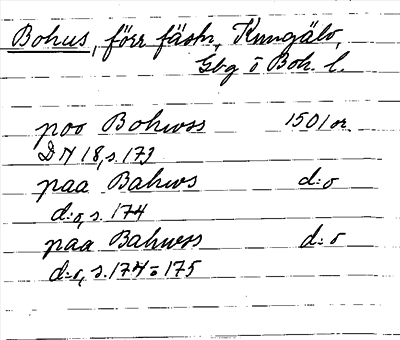 Bohus, förr fästn, Kungälv,
Gbg o Boh. l.
poo Bohwss 1501 or.
DN 18, s. 173
paa Bahws d:o
d:o, s. 174
paa Bahwss d:o
d:o, s. 174-175